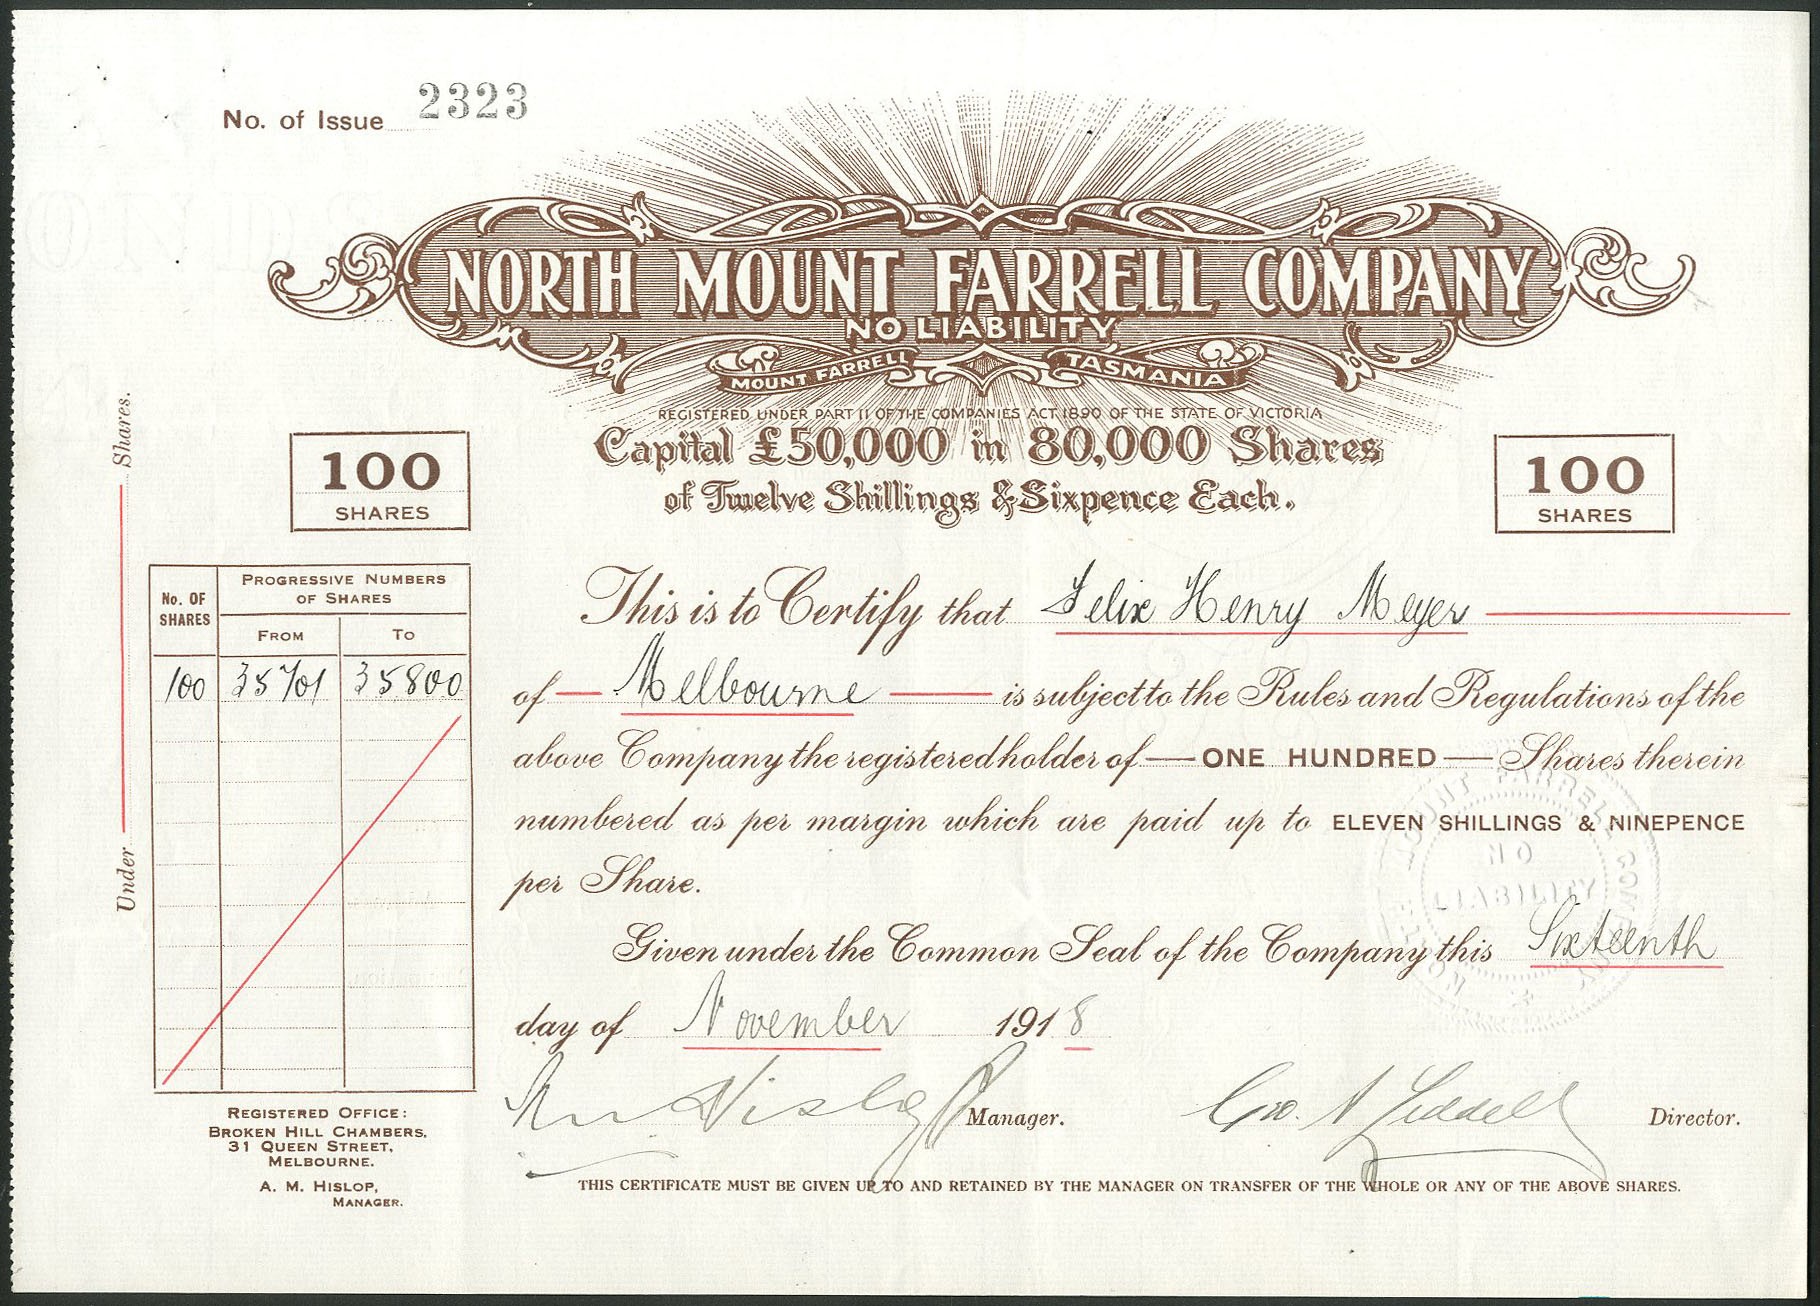 No. of Issue 2323
NORTH MOUNT FARRELL COMPANY
NO LIABILITY
MOUNT FARRELL TASMANIA
REGISTERED UNDER PART II OF THE COMPANIES ACT 1890 OF THE STATE OF VICTORIA
Capital £50,000 in 80,000 Shares
of Twelve Shillings & Sixpence Each.
100
SHARES
100
SHARES
Under Shares.
No. OF SHARES
PROGRESSIVE NUMBERS
OF SHARES
FROM TO
100 35701 35800
This is to Certify that Felix Henry Meyer
of Melbourne is subject to the Rules and Regulations of the
above Company the registered holder of — ONE HUNDRED — Shares therein
numbered as per margin which are paid up to ELEVEN SHILLINGS & NINEPENCE
per Share.
NORTH MOUNT FARRELL COMPANY
NO
LIABILITY
Given under the Common Seal of the Company this Sixteenth
day of November 1918
Manager.
Geo. Liddell Director.
REGISTERED OFFICE:
BROKEN HILL CHAMBERS,
31 QUEEN STREET,
MELBOURNE.
A. M. HISLOP,
MANAGER.
THIS CERTIFICATE MUST BE GIVEN UP TO AND RETAINED BY THE MANAGER ON TRANSFER OF THE WHOLE OR ANY OF THE ABOVE SHARES.